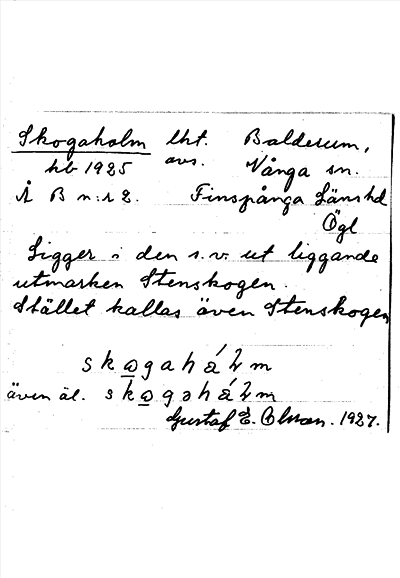 Skogaholm lht. Balderum,
hb 1925 avs. Vånga sn.
Å B n:r 2. Finspånga Länshd
Ögl
Ligger i den s.v. ut liggande
utmarken Stenskogen.
Stället kallas även Stenskogen
även äl.
Gustaf E. Olsson. 1927.